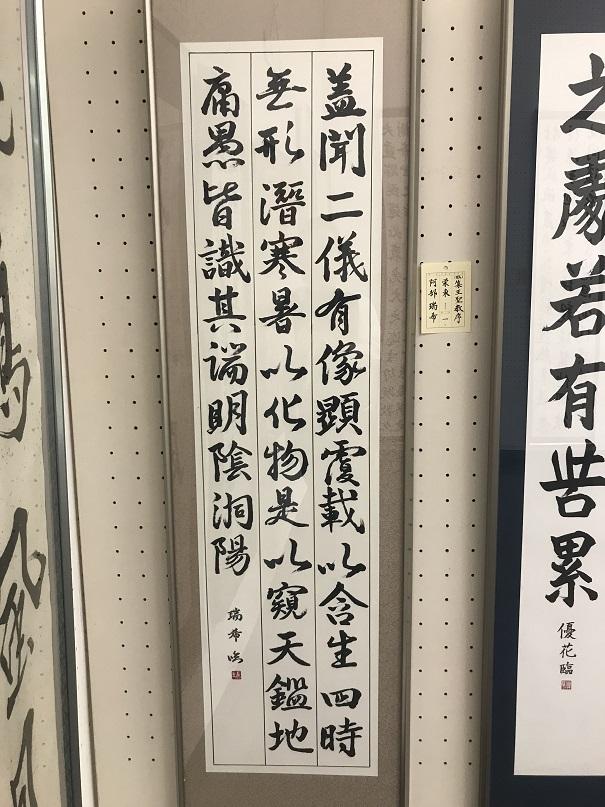 之處若有累
優花臨
集王聖教序
栄東 一
阿部 瑞希
盖聞二儀有像顯覆載以含生四時
無形潛寒暑以化物是以窺天鑑地
庸愚皆識其端明陰洞陽
瑞希臨